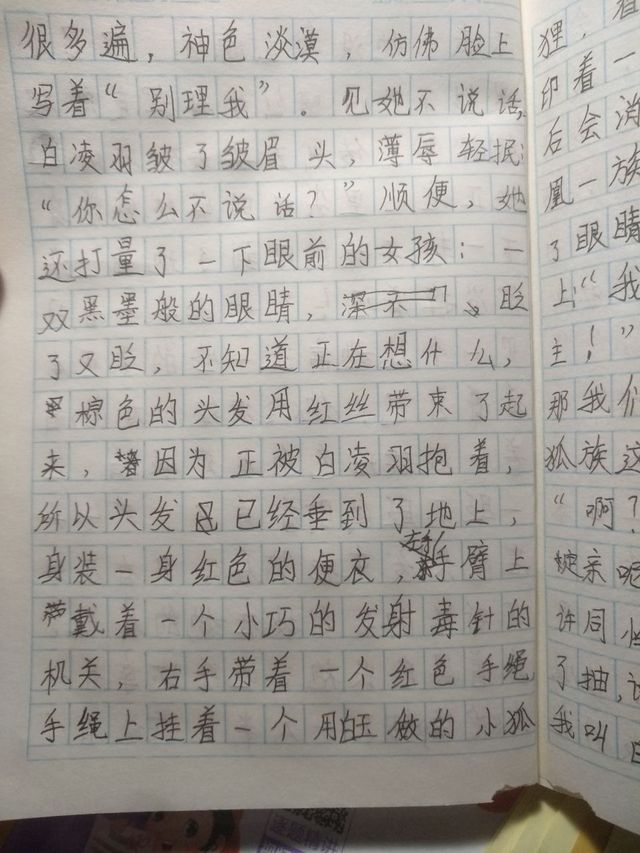 很多遍，神色淡漠，仿佛脸上
写着“别理我”。见她不说话，
白凌羽皱了皱眉头，薄辱轻抿：
“你怎么不说话？”顺便，她
还打量了一下眼前的女孩：一
双黑墨般的眼睛，眨
了又眨，不知道正在想什么，
棕色的头发用红丝带束了起
来，因为正被白凌羽抱着，
所以头发已经垂到了地上，
身装一身红色的便衣，左手手臂上
戴着一个小巧的发射毒针的
机关，右手带着一个红色手绳，
手绳上挂着一个用白玉做的小狐
狸，着
印着一
后会
凰一族
了眼睛
上“我
主！”
那我们
狐族这
“啊？
亲呢
许同
了抽，
我叫白